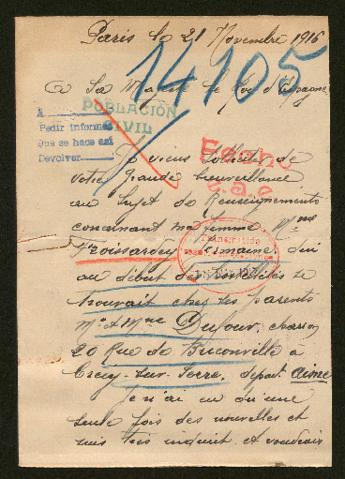 Paris le 21 Novembre 1916
14105
A Sa Majesté le Roi d'Espagne
POBLACIÓN
CIVIL
A
Pedir informes
Que se hace así
Devolver
Je viens solliciter de
votre grande bienveillance
au sujet de Renseignements
concernant ma femme Mme
Germaine, qui
au début des hostilités se
trouvait chez ses parents
Mr et Mme Dufour, charron
20 Rue de Buconville à
Crécy-sur-Serre, départ. Aisne
Je n'ai eu qu'une
seule fois des nouvelles et
suis très inquiet et voudrais